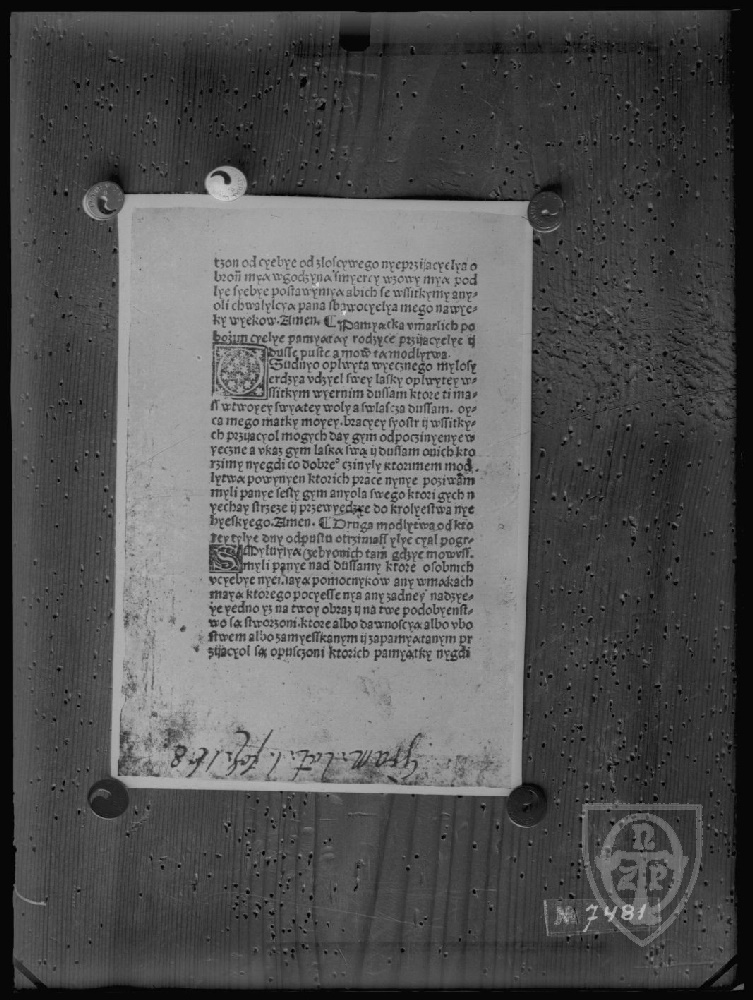 tzon od cyebye od zloscywego nyeprzijacyelya o
broń mya w godzyną śmyercy wzowy mya pod
lye syebye postawymya abich se wssitkymy any⸗
oli chwalylcya pana sbawocyelya mego na wye⸗
ky wyekow. Amen. ¶ Pamyącka vmarlich po
bożim cyelye pamyątay rodzyce przijacyelye ij
dusse puste a mow tą modlytwa.
Suduyo oplwyta wyecznego mylosy
erdzya vdzyel swey lasky oplwytey w⸗
ssitkym wyernim dussam ktore ti ma⸗
ss w twoyey swyatey woly a swlascza dussam. oy⸗
ca mego matky moyey. bracyey syostr ij wssitky⸗
ch przijacyol mogych day gym odpoczinyenye w
yeczne a vkaz gym laską swą ij dussam onich kto
rzimy nyegdi co dobre° czinyly ktorinem mod
lytwą powynyen ktorich prace nynye poziwam
myli panye sesly gym anyola swego ktori gych n
yechay strzeze ij przewyedzye do krolyestwa nye
byeskyego. Amen. ¶ Druga modlytwa od kto
rey tylye dny odpustu otrzimass ylye cyal pogr⸗
Smyluyą czebyonich tam gdzye mowyss.
myli panye nad dussamy ktore osobnich
v cyebye nyemayą pomocnykow any w mąkach
mayą ktorego pocyessenya any zadney nadzye⸗
ye yedno yz na twoy obraz ij na twe podobyenst⸗
wo są stworzoni. ktore albo dawnoscyą albo vbo
stwem albo zamyesskanym ij zapamyątanym pr
zijacyol są opusczoni ktorich pamyątky nygdi
Gram. lat. 1. fol. 168
NZP
№ 7481